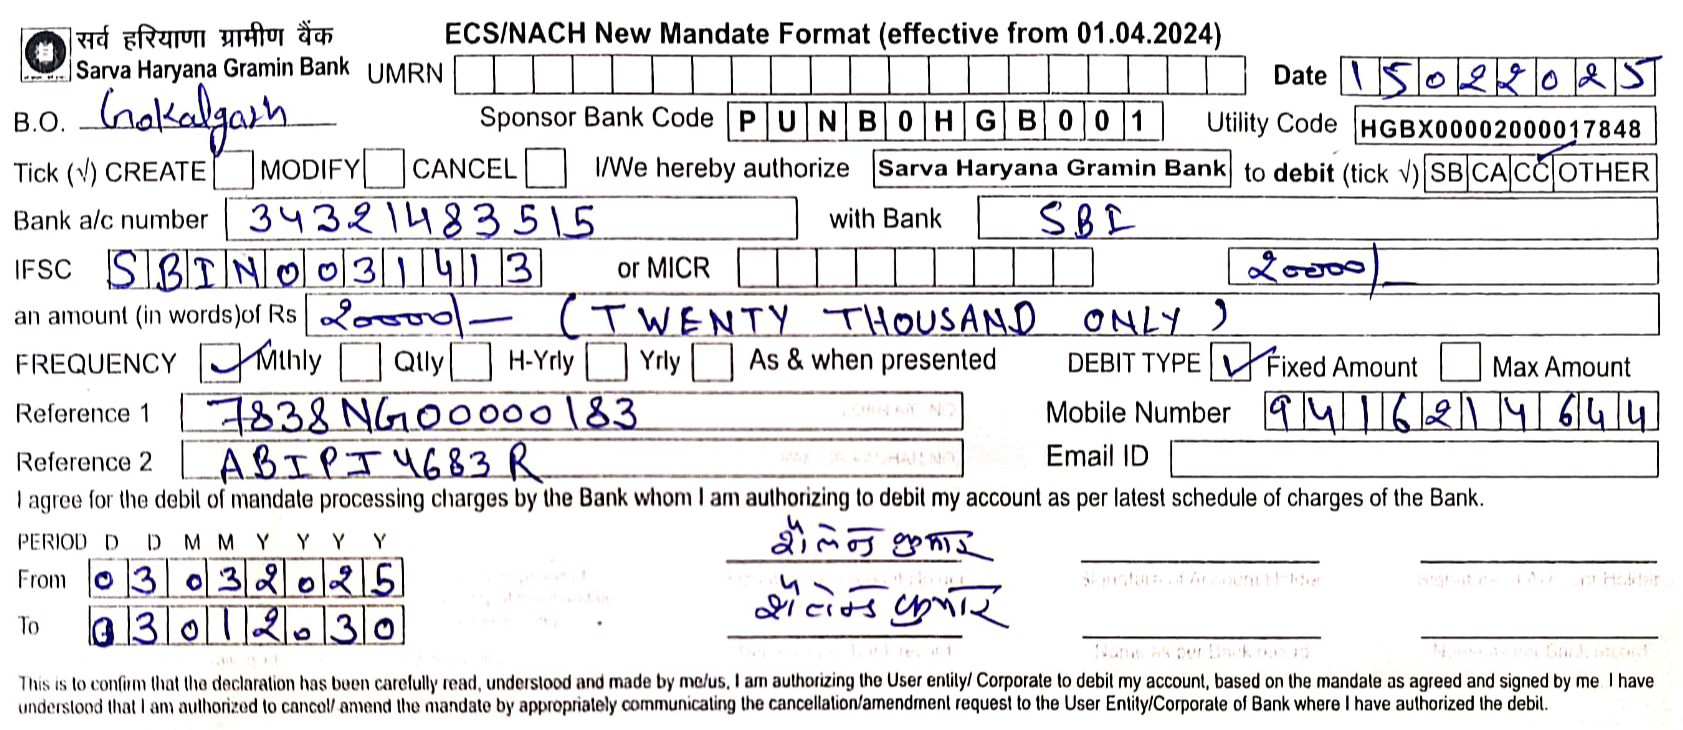 सर्व हरियाणा ग्रामीण बैंक
Sarva Haryana Gramin Bank
ECS/NACH New Mandate Format (effective from 01.04.2024)
UMRN Date 15022025
B.O. Gokalgarh Sponsor Bank Code PUNB0HGB001 Utility Code HGBX00002000017848
Tick (√) CREATE MODIFY CANCEL I/We hereby authorize Sarva Haryana Gramin Bank to debit (tick √) SB CA CC OTHER
Bank a/c number 34321483515 with Bank SBI
IFSC SBIN0031413 or MICR 20000/-
an amount (in words)of Rs 20000/- (TWENTY THOUSAND ONLY)
FREQUENCY Mthly Qtly H-Yrly Yrly As & when presented DEBIT TYPE Fixed Amount Max Amount
Reference 1 7838NG00000183 Mobile Number 9416214644
Reference 2 ABIPJ4683R Email ID
I agree for the debit of mandate processing charges by the Bank whom I am authorizing to debit my account as per latest schedule of charges of the Bank.
PERIOD D D M M Y Y Y Y
From 03032025
To 03012030
कुमार
कुमार
Signature of Account Holder
Name as per Bank record
This is to confirm that the declaration has been carefully read, understood and made by me/us, I am authorizing the User entity/ Corporate to debit my account, based on the mandate as agreed and signed by me. I have
understood that I am authorized to cancel/ amend the mandate by appropriately communicating the cancellation/amendment request to the User Entity/Corporate of Bank where I have authorized the debit.